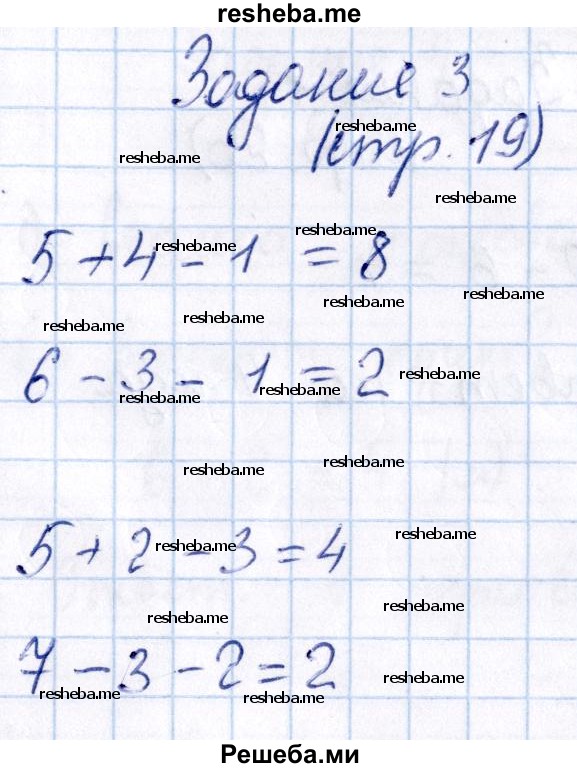 resheba.me
Задание 3
resheba.me
(стр. 19)
resheba.me
resheba.me
resheba.me
resheba.me
5 + 4 - 1 = 8
resheba.me
resheba.me
resheba.me
resheba.me
6 - 3 - 1 = 2
resheba.me
resheba.me
resheba.me
resheba.me
resheba.me
resheba.me
5 + 2 - 3 = 4
resheba.me
resheba.me
resheba.me
7 - 3 - 2 = 2
resheba.me
resheba.me
resheba.me
Решеба.ми